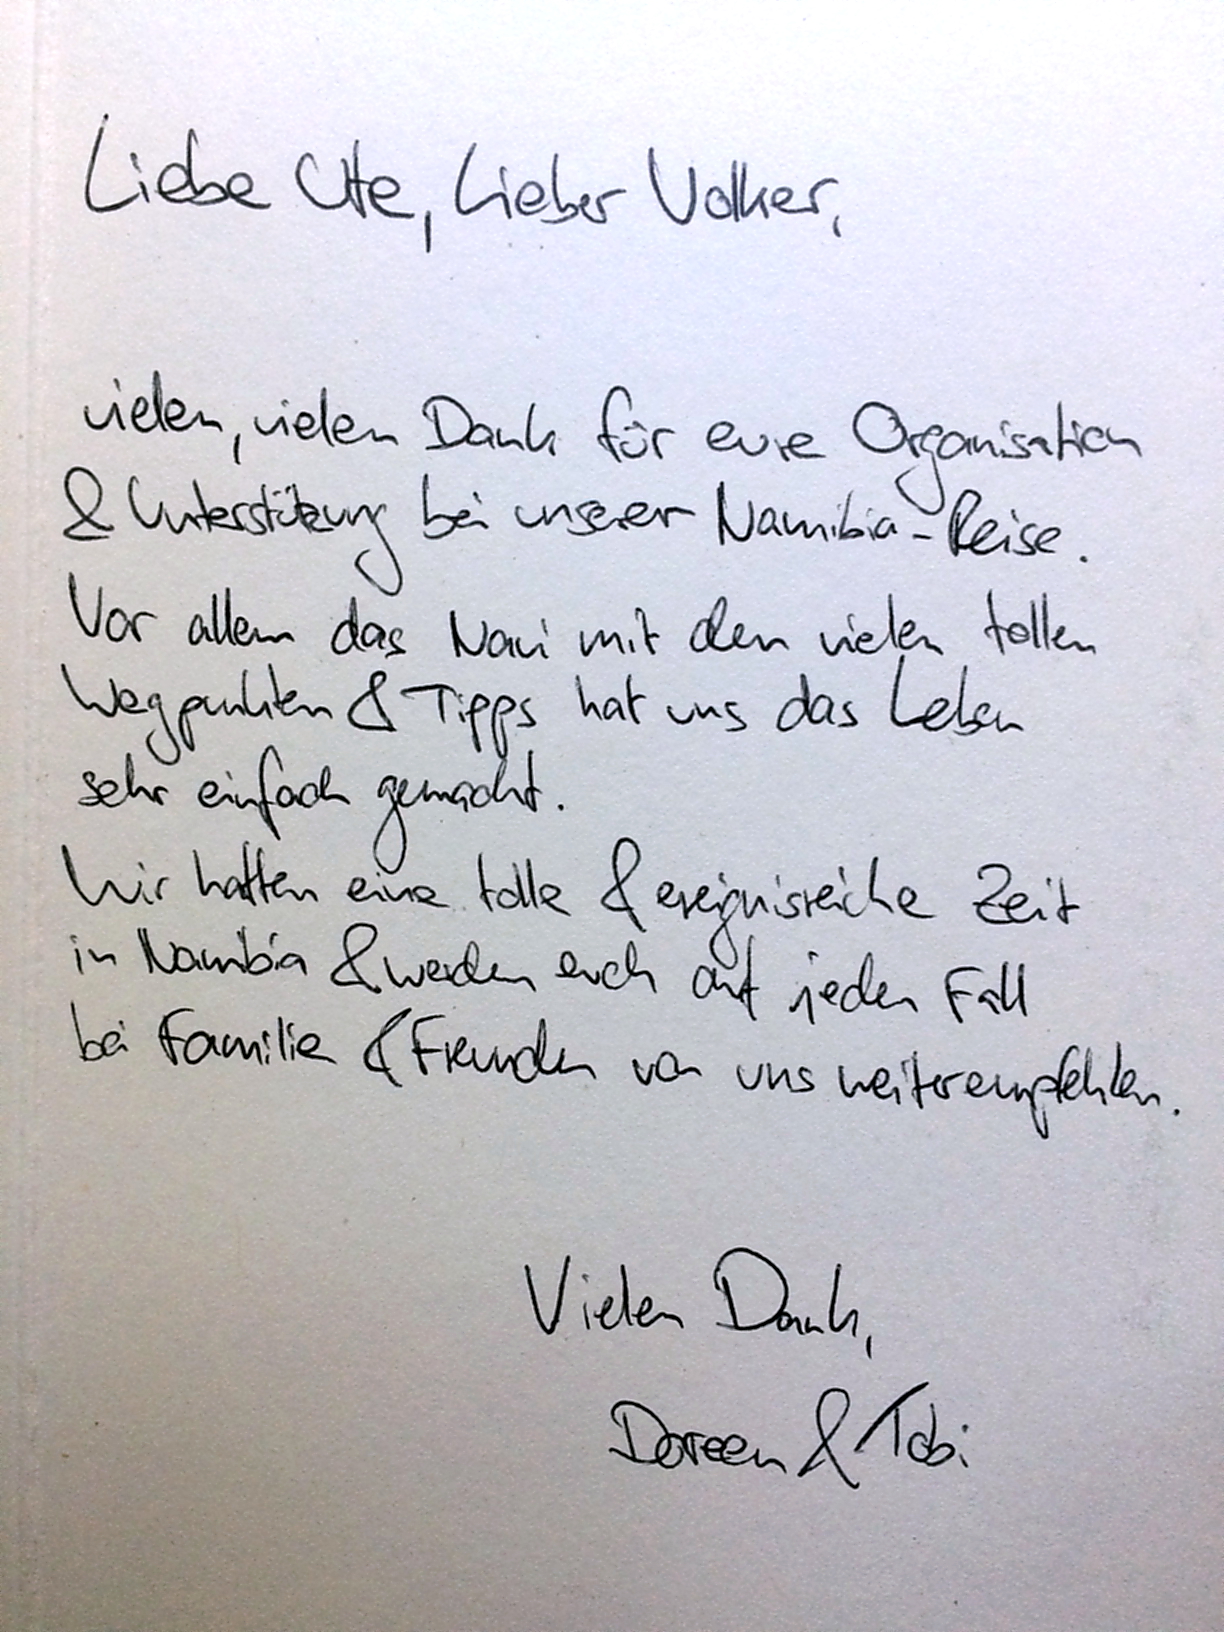 Liebe Ute, Lieber Volker,
vielen, vielen Dank für eure Organisation
& Unterstützung bei unserer Namibia-Reise.
Vor allem das Navi mit den vielen tollen
Wegpunkten & Tipps hat uns das Leben
sehr einfach gemacht.
Wir hatten eine tolle & ereignisreiche Zeit
in Namibia & werden euch auf jeden Fall
bei Familie & Freunden von uns weiterempfehlen.
Vielen Dank,
Doreen & Tobi